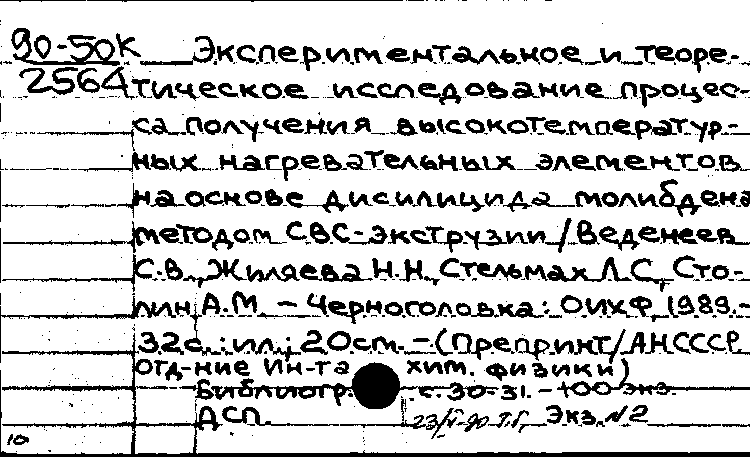 90-50к Экспериментальное и теоре-
2564 тическое исследование процес-
са получения высокотемператур-
ных нагревательных элементов
на основе дисилицида молибдена
методом СВС-экструзии / Веденеев
С.В., Жиляева Н.Н., Стельмах Л.С., Сто-
лин А.М. – Черноголовка: ОИХФ, 1989.-
32с.: ил.; 20см. – (Препринт/АНСССР.
Отд-ние Ин-та хим. физики)
Библиогр. с. 30-31. – 100 экз.
ДСП. Экз. №2
10